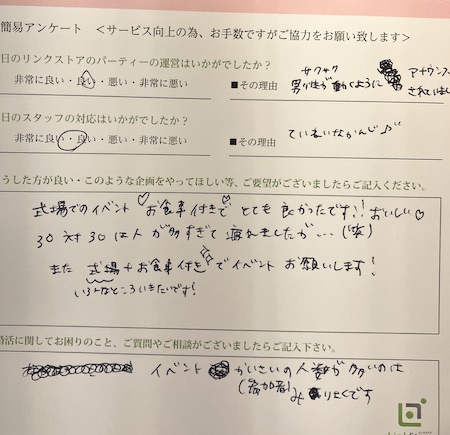 簡易アンケート <サービス向上の為、お手数ですがご協力をお願い致します>
日のリンクストアのパーティーの運営はいかがでしたか？
非常に良い・良い・悪い・非常に悪い
■その理由
サクサク
男性が動くように
アナウンス
されていまし
日のスタッフの対応はいかがでしたか？
非常に良い・良い・悪い・非常に悪い
■その理由
ていねいなかんじ♪
うした方が良い・このような企画をやってほしい等、ご要望がございましたらご記入ください。
式場でのイベント♡お食事付きで♡とても良かったです!! おいしい♡
30対30は人が多すぎて疲れましたが…(笑)
また 式場+お食事付きでイベント お願いします!
いろんなところいきたいです!
婚活に関してお困りのこと、ご質問やご相談がございましたらご記入下さい。
イベント かいさいの人数が多いのは
(参加者) みりょくです